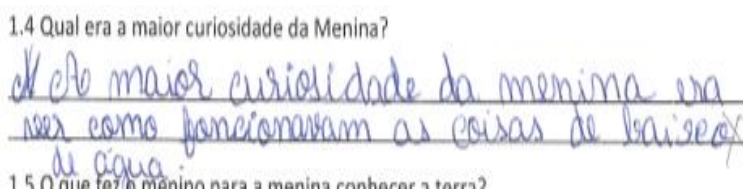 1.4 Qual era a maior curiosidade da Menina?
A maior curiosidade da menina era
ver como foncionavam as coisas de baixo
de água.
1.5 O que fez o menino para a menina conhecer a terra?